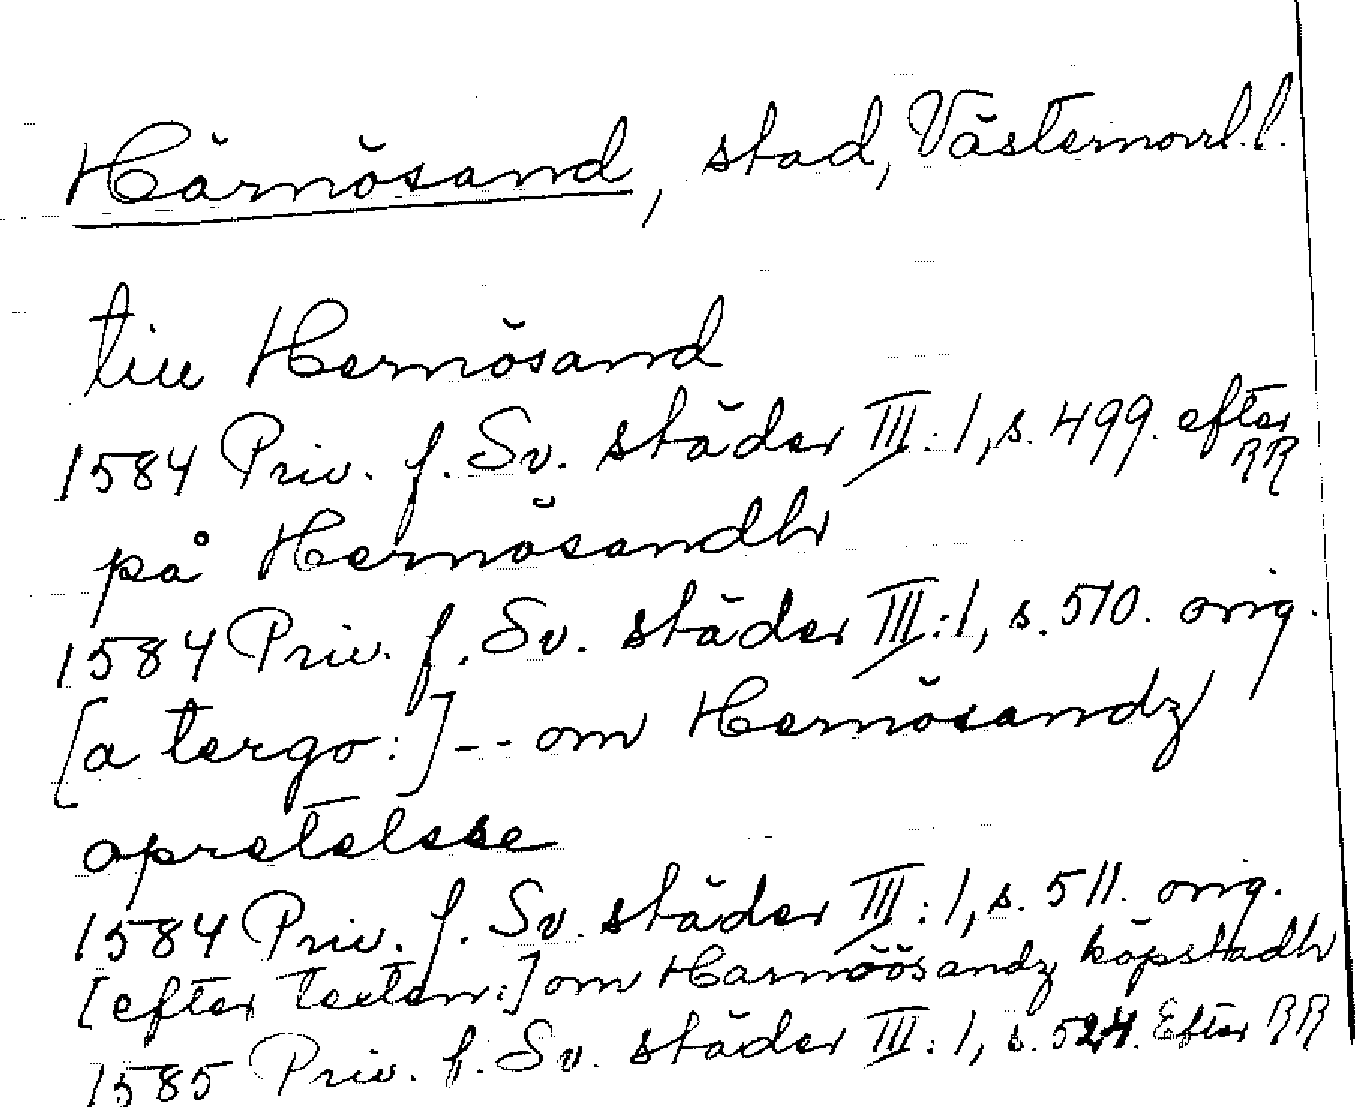 Härnösand, stad, Västernorrl.l.
till Hernösand
1584 Priv. f. Sv. städer III:1, s. 499. efter RR
på Hernösandh
1584 Priv. f. Sv. städer III:1, s. 510. orig.
[a tergo:] -- om Hernösandz
opretelsse
1584 Priv. f. Sv. städer III:1, s. 511. orig.
[efter texten:] om Harnöösandz köpstadh
1585 Priv. f. Sv. städer III:1, s. 524. Efter RR